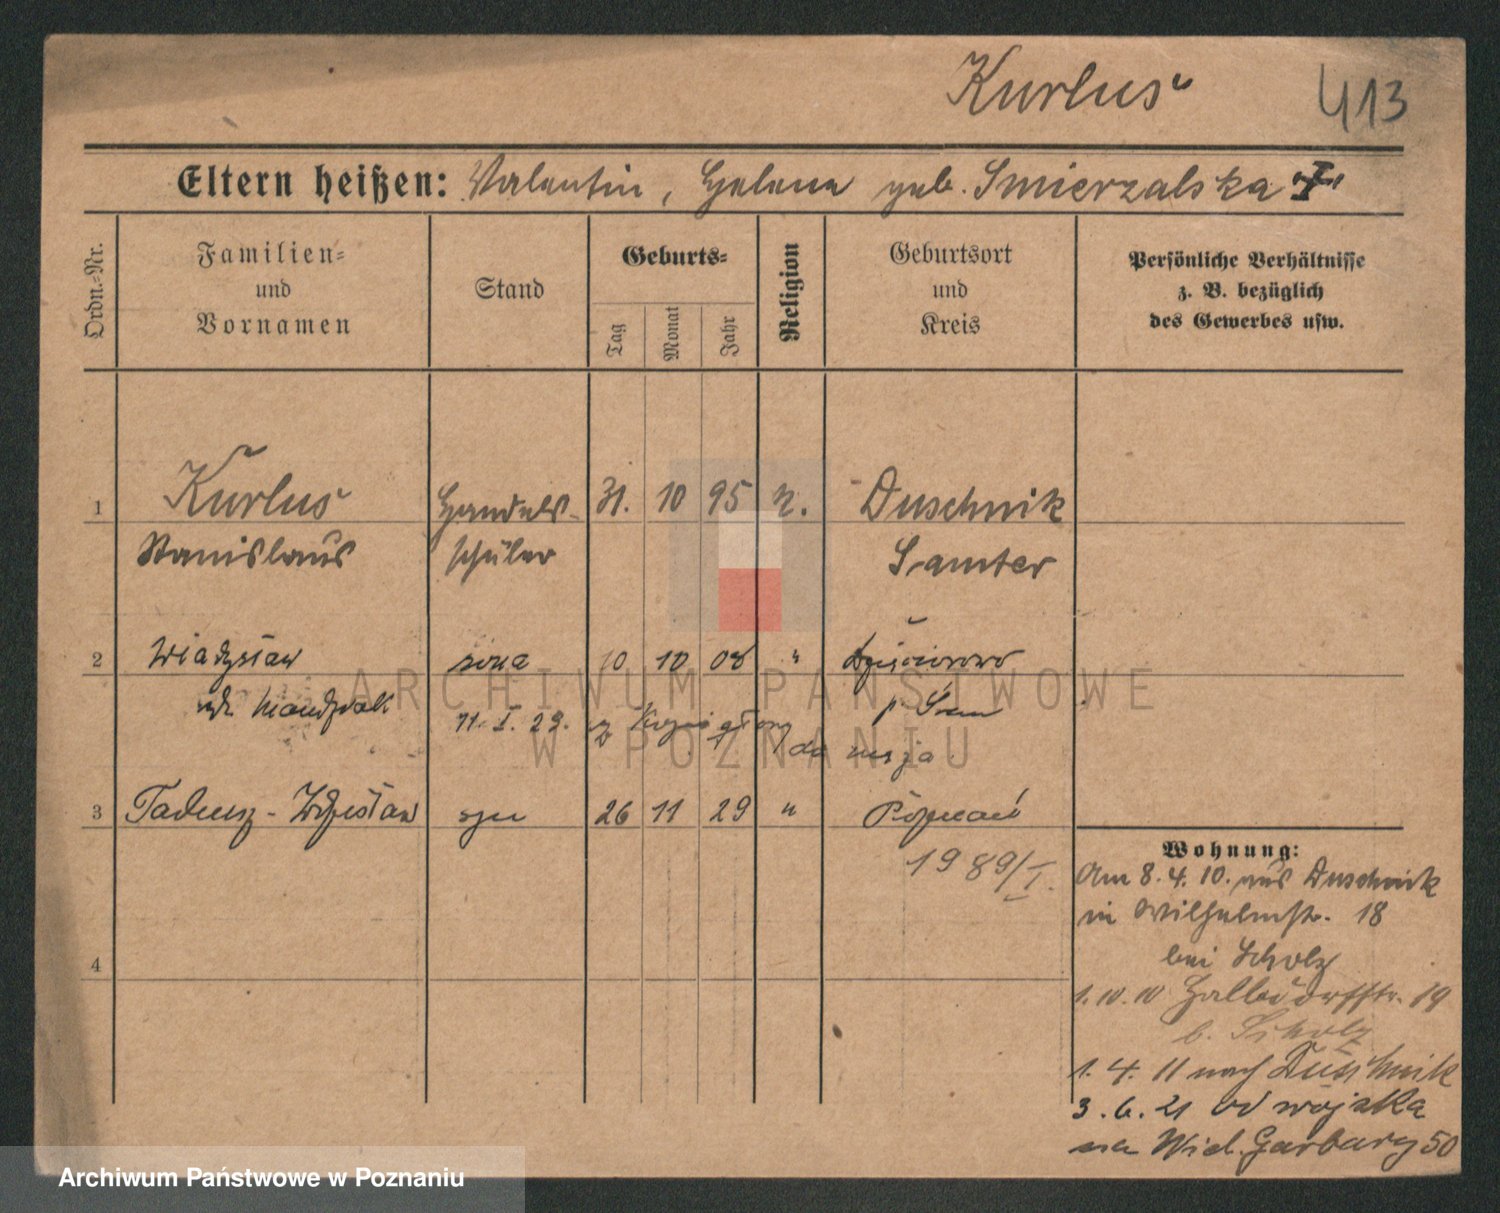 Kurlus
413
Eltern heißen: Valentin, Helena geb. Smierzalska †
Ordn.-Nr.
Familien-
und
Vornamen
Stand
Geburts-
Tag
Monat
Jahr
Religion
Geburtsort
und
Kreis
Persönliche Verhältnisse
z. B. bezüglich
des Gewerbes usw.
1 Kurlus Handels- 31. 10 95 Duschnik
Stanislaus schüler Samter
2 Władysława żona 10 10 08 "
11. I. 29.
3 Tadeusz - Zdzisław syn 26 11 29 " Poznań
1989/I.
4
Wohnung:
Am 8. 4. 10. aus Duschnik
in Wilhelmstr. 18
bei Scholz
1. 10. 10 19
b. Scholz
1. 4. 11 nach Duschnik
3. 6. 21 od wojska
na Wiel. Garbary 50
ARCHIWUM PAŃSTWOWE
W POZNANIU
Archiwum Państwowe w Poznaniu